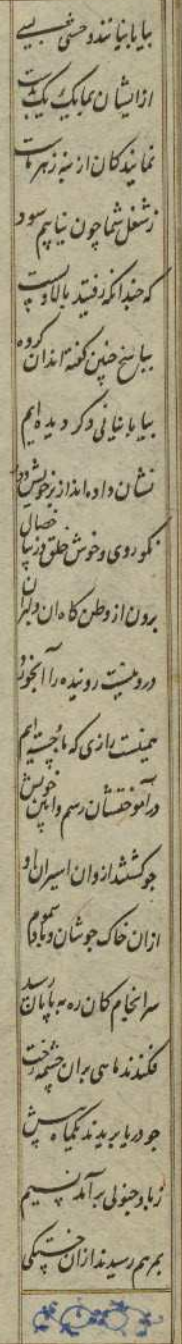 بیابانیانند وحشی بسی
از ایشان بمایک بیک
نمایندکان از نه زهر
ز شغل شما چون نیابیم سود
که چندانکه رفتید بالا و پست
بپاسخ چنین گفته اند آن گروه
بیابانیانی دگر دیده ایم
نشان داده اند از بر خویش
نکو روی و خوش خلق و زیبا خصال
برون از وطن
درو نیست روینده را آبخورد
همینست رازی که ما جسته ایم
در آموختشان رسم و آیین خویش
چو کشتند از وان اسیران
از ان خاک جوشان و باد سموم
سرانجام کان ره بپایان رسید
فکندند ماهی بران چشمه رخت
چو دریا بریدند یکماه پیش
ز باد جنوبی برآمد نسیم
بمرهم رسیدند از ان خستگی